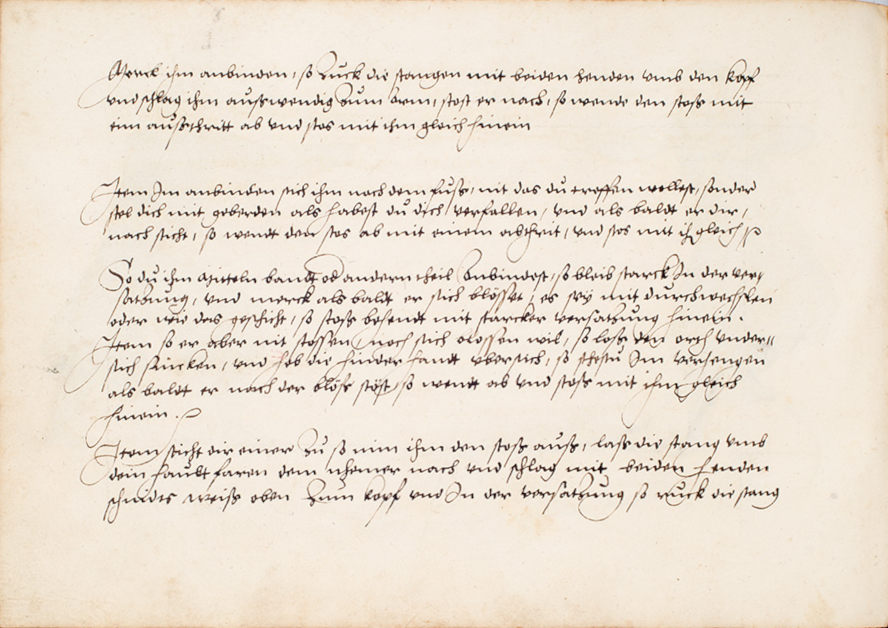 Merck ihm anbinden, so Zuck die stangen mit beiden henden umb den kopf
und schlag ihm ausswendig Zum arm, stost er nach, so wende den stoss mit
eim ausschritt ab und stos mit ihm gleich hinein
Item Im anbinden stich ihm nach dem fuss, nit das du treffen wellest, sonder
stel dich mit geberden als habest du dich verfallen, und als baldt er dir,
nach sticht, so wendt den stos ab mit einem abtrit, und stos mit ihm gleich
So du ihm Mitteln bandt od andern theil Anbindest, so bleib starck In der ver,
satzung, und merck als baldt er sich blösset, es sey mit durchwechslen
oder wie das geschicht, so stoss behendt mit starcker versatzung hinein.
Item so er aber nit stossen noch sich wil, so loss den orth under,,
sich sincken, und heb die hinder handt ubersich, so Im
als baldt er nach der blöss stöst, so wendt ab und stoss mit ihm gleich
hinein.
Item sticht dir einer Zu so nim ihm den stoss auss, lass die stang umb
dein haubt faren dem nach und schlag mit beiden henden
schnidts weiss oben Zum kopf und In der versatzung so ruck die stang